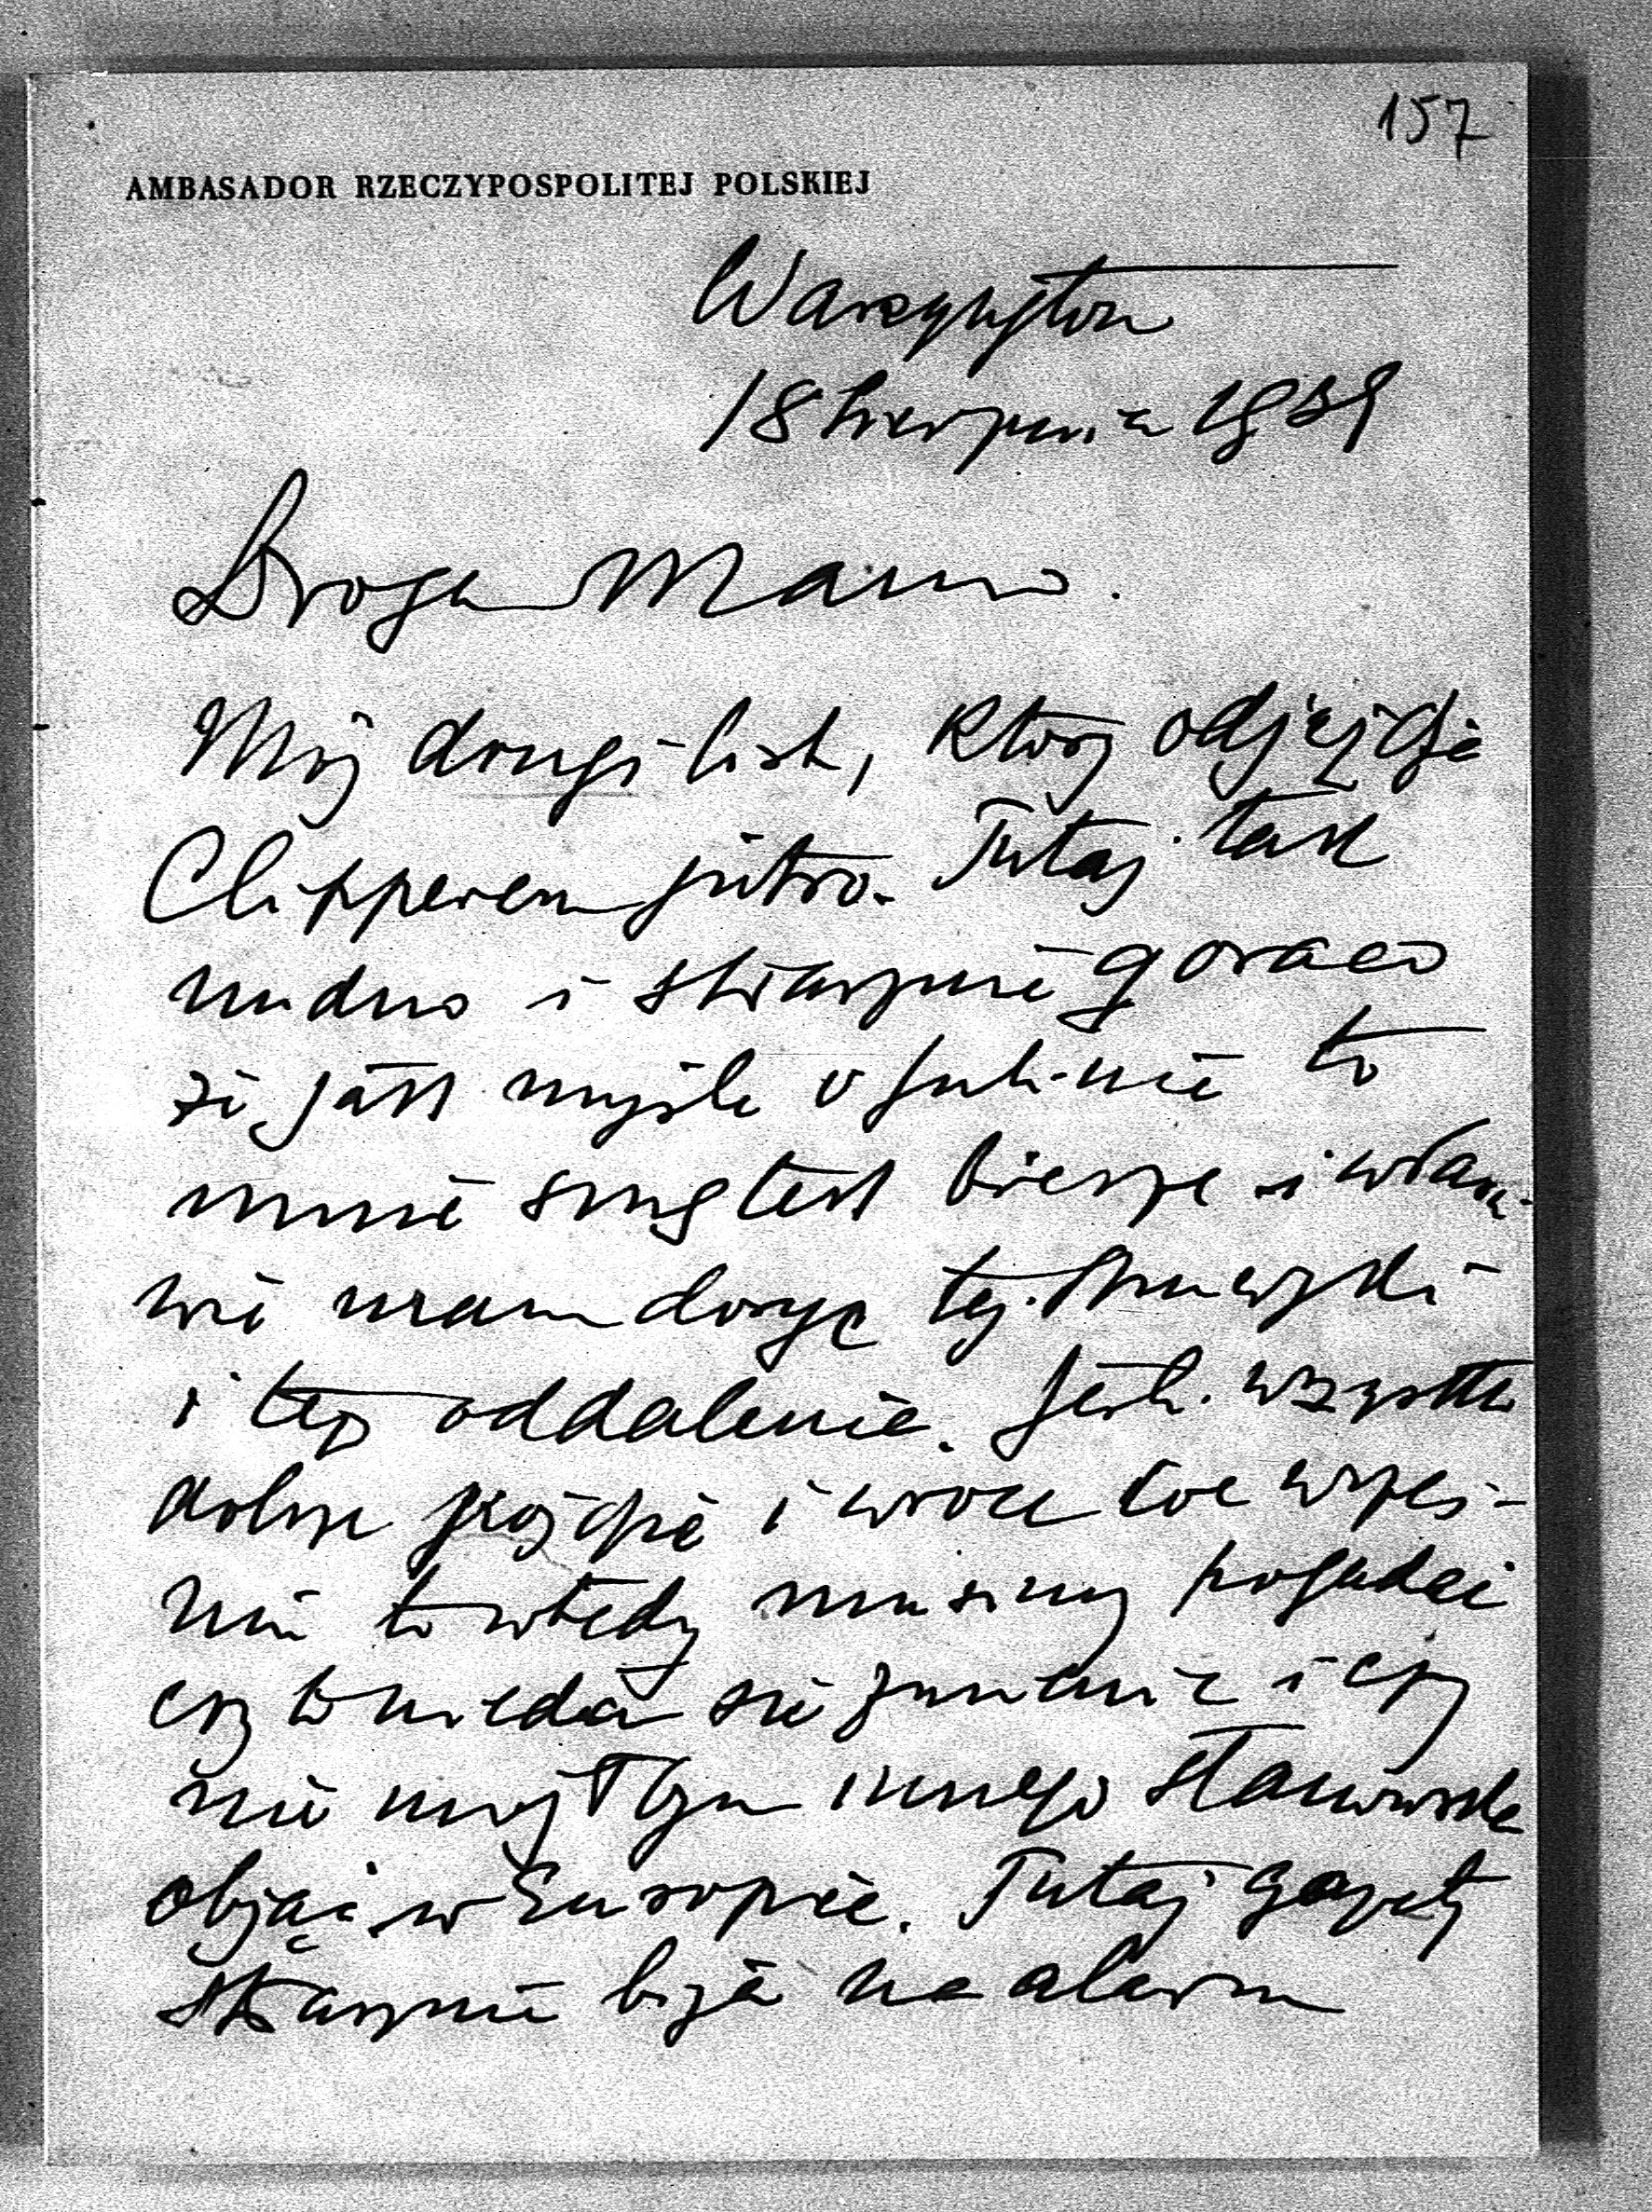 157
AMBASADOR RZECZYPOSPOLITEJ POLSKIEJ
Waszyngton
18 sierpnia 1939
Droga Mamo.
Mój drugi list, który odjeżdża
Clipperem jutro. Tutaj tak
nudno i strasznie gorąco
że jak myślę o to
mnie smutek bierze i właści-
wie mam dosyć tej
i tego oddalenia. Jeśli wszystko
dobrze pójdzie i wrócę we wrześ-
niu to wtedy musimy pogadać
czy to nie da się zmienić i czy
nie mógłbym innego stanowiska
objąć w Europie. Tutaj gazety
strasznie biją na alarm